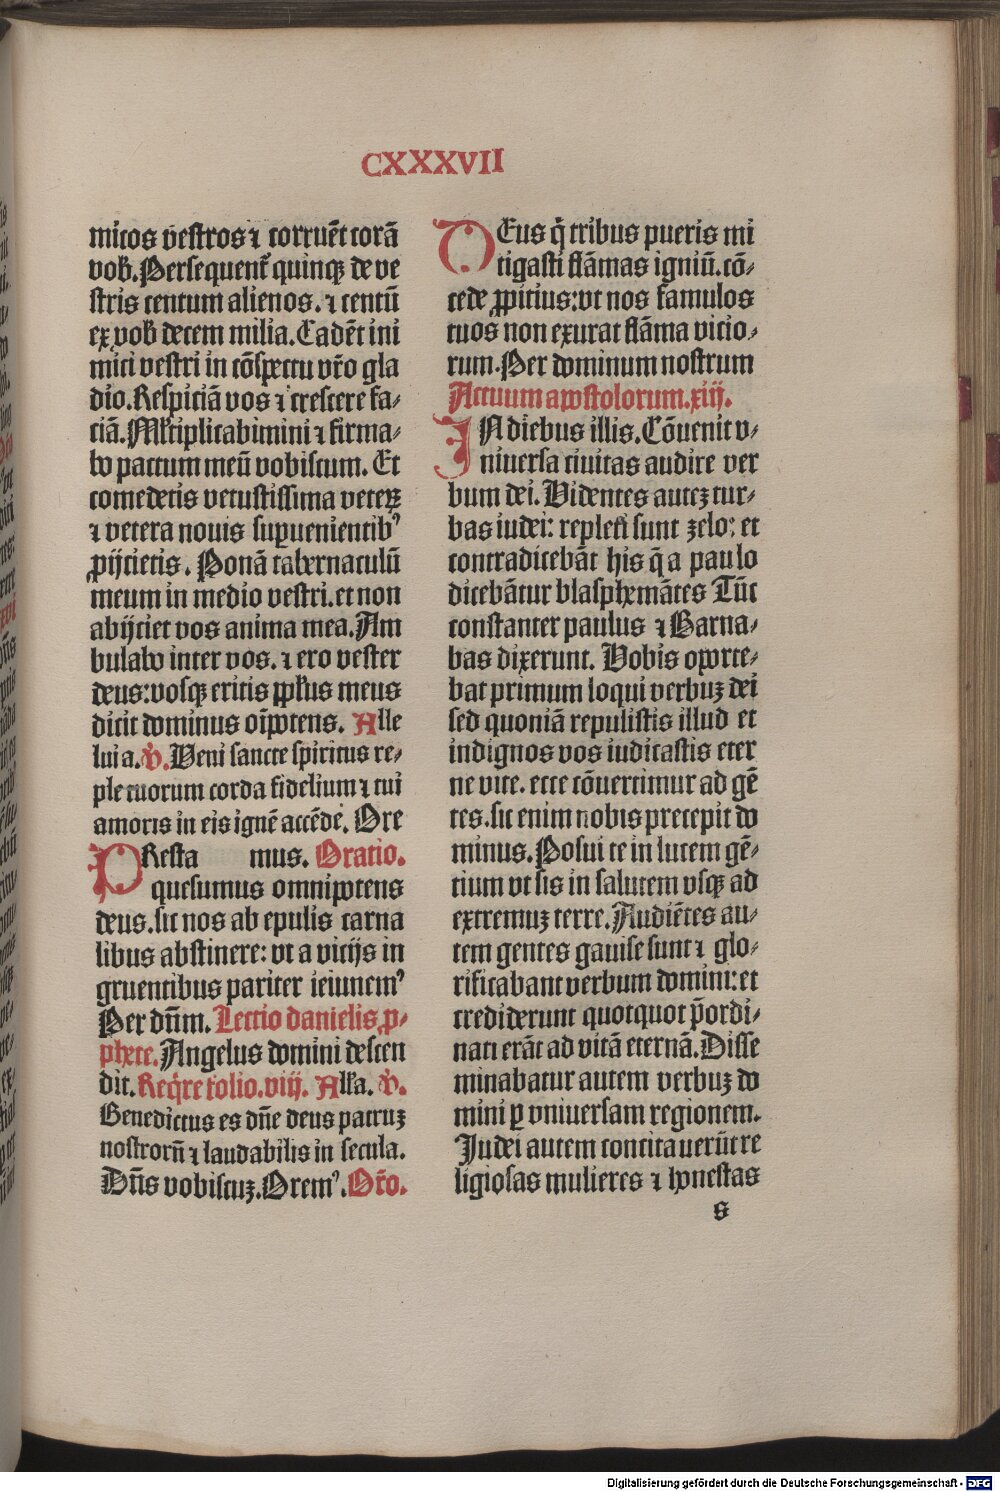 CXXXVII
micos vestros ⁊ corruēt corā
vob̄. Persequent᷑ quinqꝫ de ve
stris centum alienos. ⁊ centū
ex vob̄ decem milia. Cadēt ini
mici vestri in cōspectu vr̄o gla
dio. Respiciā vos ⁊ crescere fa⸗
ciā. Ml̓tiplicabimini ⁊ firma⸗
bo pactum meū vobiscum. Et
comedetis vetustissima veteꝝ
⁊ vetera nouis suꝑuenientibꝰ
ꝓijcietis. Ponā tabernaculū
meum in medio vestri. et non
abijciet vos anima mea. Am
bulabo inter vos. ⁊ ero vester
deus: vosqꝫ eritis ppl̓us meus
dicit dominus oīpotens. Alle
luia. ℣. Veni sancte spiritus re⸗
ple tuorum corda fidelium ⁊ tui
amoris in eis ignē accēde. Ore
PResta mus. Oratio.
quesumus omnipotens
deus. sic nos ab epulis carna
libus abstinere: vt a vicijs in
gruentibus pariter ieiunemꝰ
Per dn̄m. Lectio danielis ꝓ⸗
phete. Angelus domini descen
dit. Req̄re folio. viij. All̓a. ℣.
Benedictus es dn̄e deus patruꝫ
nostrorū ⁊ laudabilis in secula.
Dn̄s vobiscuꝫ. Oremꝰ. Or̄o.
DEus q̄ tribus pueris mi
tigasti flāmas igniū. cō⸗
cede ꝓpitius: vt nos famulos
tuos non exurat flāma vicio⸗
rum. Per dominum nostrum
Actuum apostolorum. xiij.
IN diebus illis. Cōuenit v⸗
niuersa ciuitas audire ver
bum dei. Videntes auteꝫ tur⸗
bas iudei: repleti sunt zelo: et
contradicebāt his q̄ a paulo
dicebātur blasphemātes Tūc
constanter paulus ⁊ Barna⸗
bas dixerunt. Vobis oporte⸗
bat primum loqui verbuꝫ dei
sed quoniā repulistis illud et
indignos vos iudicastis eter
ne vite. ecce cōuertimur ad gē
tes. sic enim nobis precepit do
minus. Posui te in lucem gē⸗
tium vt sis in salutem vsqꝫ ad
extremuꝫ terre. Audiētes au⸗
tem gentes gauise sunt ⁊ glo⸗
rificabant verbum domini: et
crediderunt quotquot p̄ordi⸗
nati erāt ad vitā eternā. Disse
minabatur autem verbuꝫ do
mini ꝑ vniuersam regionem.
Iudei autem concitauerūt re
ligiosas mulieres ⁊ honestas
s
Digitalisierung gefördert durch die Deutsche Forschungsgemeinschaft - DFG